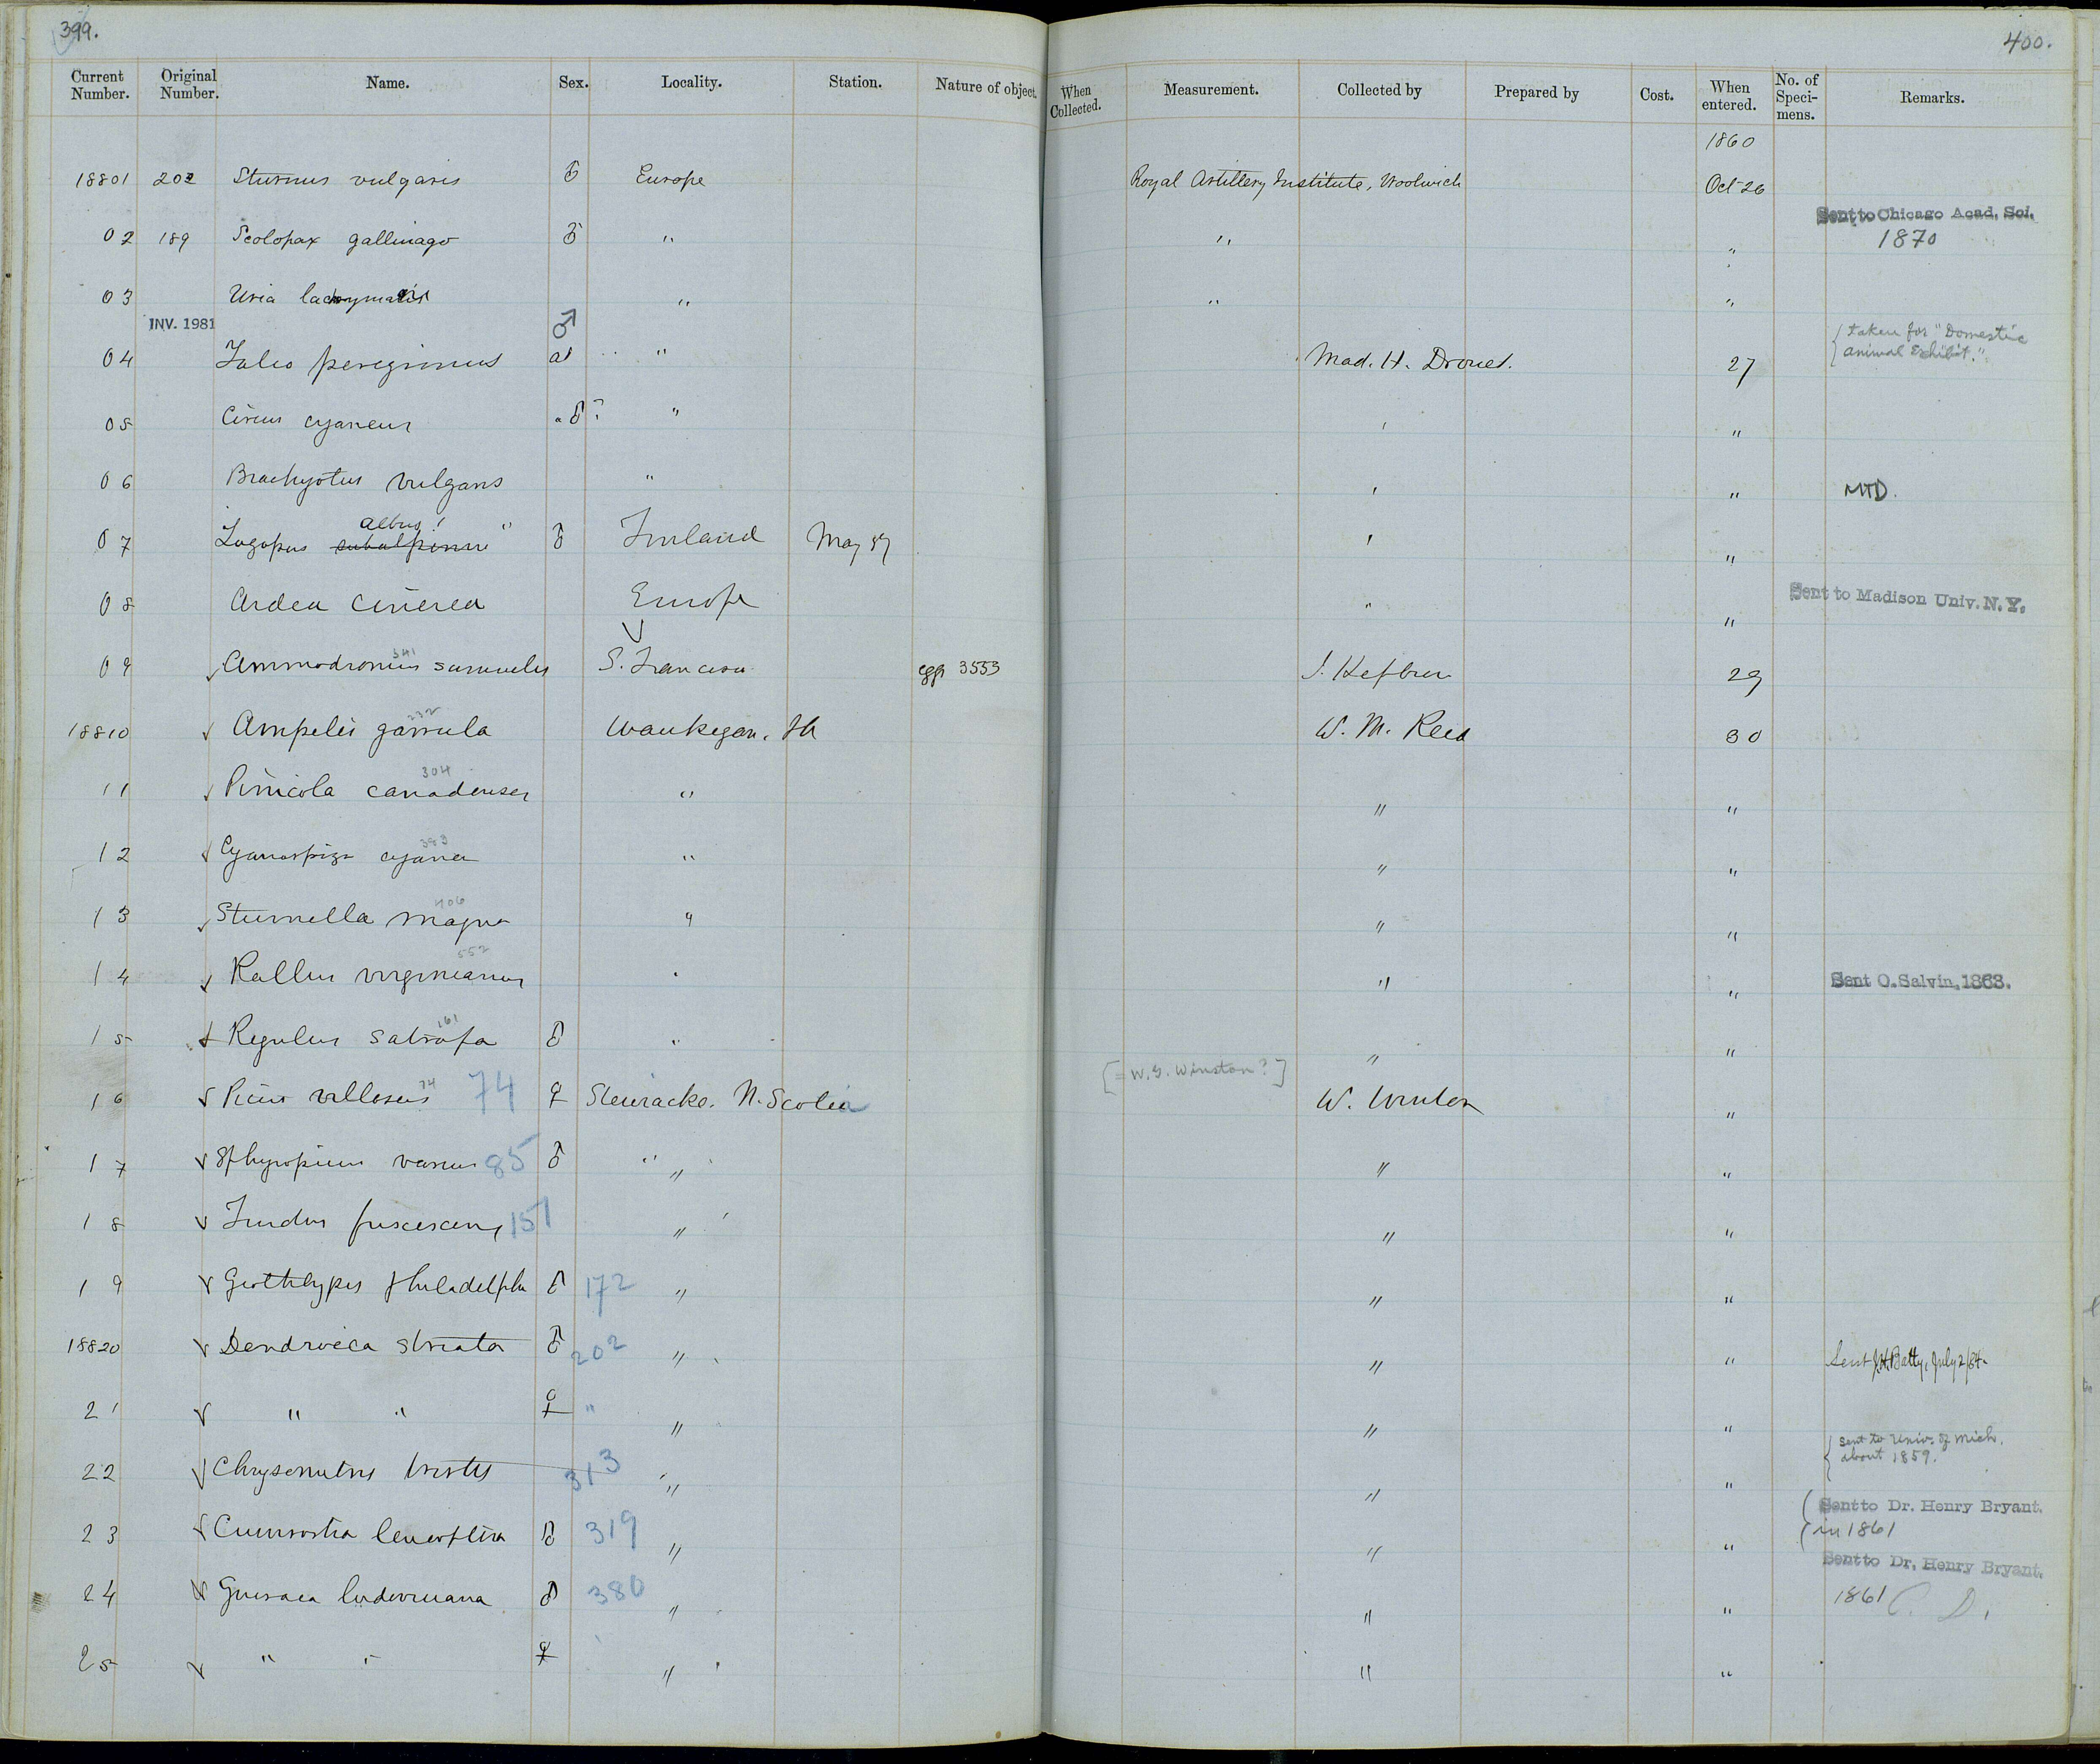 399.
400.
Current Number. Original Number. Name. Sex. Locality. Station. Nature of object. When Collected. Measurement. Collected by Prepared by Cost. When entered. No. of Specimens. Remarks.
1860
18801 202 Sturnus vulgaris ♂ Europe Royal Artillery Institute, Woolwich Oct 26
Sent to Chicago Acad. Sci.
02 189 Scolopax gallinago ♂ " " " 1870
03 Uria lacrymans " " "
INV. 1981 ♂
04 Falco peregrinus ad " Mad. H. Drouet. 27 { taken for "Domestic animal Exhibit."
05 Circus cyaneus ♂? " " "
06 Brachyotus vulgaris " " " MTD.
albus! "
07 Lagopus subalpinus ♂ Finland May 57 " "
08 Ardea cinerea Europe " " Sent to Madison Univ. N.Y.
341
09 Ammodromus samuelis S. Francisco egg 3553 29
232
18810 Ampelis garrula Waukegan. Ill W. M. Reed 30
304
11 Pinicola canadensis " " "
383
12 Cyanospiza cyanea " " "
406
13 Sturnella magna " " "
552
14 Rallus virginianus " " " Sent O. Salvin, 1863.
161
15 Regulus satrapa ♂ " " "
[= W. G. Winston?]
16 Picus villosus 74 74 ♀ N. Scotia W. Winton "
17 Sphyropicus varius 85 ♂ " " " "
18 Turdus fuscescens 151 " " "
19 Geothlypis philadelphia ♂ 172 " " "
18820 Dendroeca striata ♂ 202 " " " Sent J.H. Batty, July 2/84.
21 " " ♀ " " " "
22 Chrysomitris tristis 313 " " " { sent to Univ. of Mich. about 1859.
23 Curvirostra leucoptera ♂ 319 " " " ( Sent to Dr. Henry Bryant. in 1861
Sent to Dr. Henry Bryant.
24 Guiraca ludoviciana ♂ 380 " " " 1861 C. D.
25 " " ♀ " " "